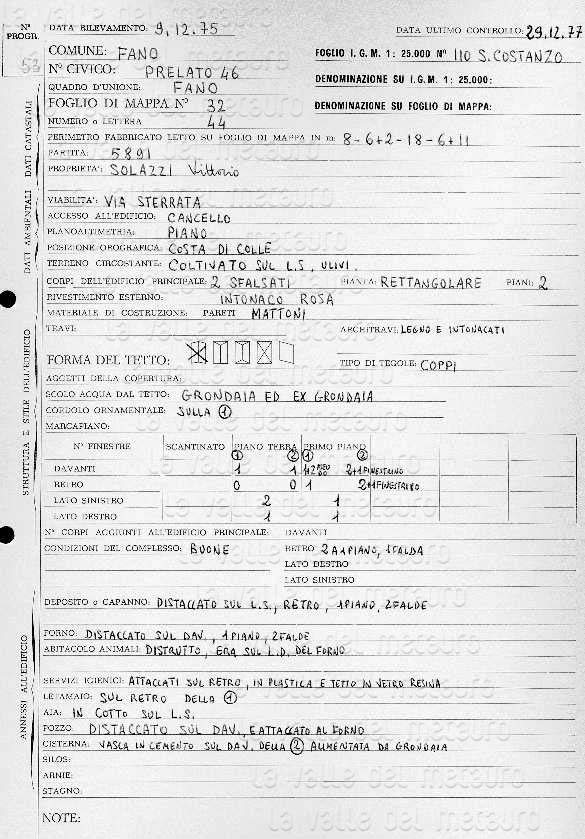 N° PROGR. DATA RILEVAMENTO: 9.12.75 DATA ULTIMO CONTROLLO: 29.12.77
53 COMUNE: FANO FOGLIO I.G.M. 1: 25.000 N° 110 S. COSTANZO
N° CIVICO: PRELATO 46 DENOMINAZIONE SU I.G.M. 1: 25.000:
QUADRO D'UNIONE: FANO
FOGLIO DI MAPPA N° 32 DENOMINAZIONE SU FOGLIO DI MAPPA:
NUMERO o LETTERA 44
PERIMETRO FABBRICATO LETTO SU FOGLIO DI MAPPA IN m: 8-6+2-18-6+11
PARTITA: 5891
PROPRIETA': SOLAZZI Vittorio
DATI CATASTALI
VIABILITA': VIA STERRATA
ACCESSO ALL'EDIFICIO: CANCELLO
PLANOALTIMETRIA: PIANO
POSIZIONE OROGRAFICA: COSTA DI COLLE
TERRENO CIRCOSTANTE: COLTIVATO SUL L.S, ULIVI.
DATI AMBIENTALI
CORPI DELL'EDIFICIO PRINCIPALE: 2 SFALSATI PIANTA: RETTANGOLARE PIANI: 2
RIVESTIMENTO ESTERNO: INTONACO ROSA
MATERIALE DI COSTRUZIONE: PARETI MATTONI
TRAVI: ARCHITRAVI: LEGNO E INTONACATI
FORMA DEL TETTO: TIPO DI TEGOLE: COPPI
AGGETTI DELLA COPERTURA:
SCOLO ACQUA DAL TETTO: GRONDAIA ED EX GRONDAIA
CORDOLO ORNAMENTALE: SULLA 1
MARCAPIANO:
N° FINESTRE SCANTINATO PIANO TERRA PRIMO PIANO
1 2 1 2
DAVANTI 1 1 2+1 FINESTRINO
RETRO 0 0 1 2+1 FINESTRINO
LATO SINISTRO 2 1
LATO DESTRO 1 1
STRUTTURA E STILE DELL'EDIFICIO
N° CORPI AGGIUNTI ALL'EDIFICIO PRINCIPALE: DAVANTI
CONDIZIONI DEL COMPLESSO: BUONE RETRO 2 A 1 PIANO, 1 FALDA
LATO DESTRO
LATO SINISTRO
DEPOSITO o CAPANNO: DISTACCATO SUL L.S., RETRO, 1 PIANO, 2 FALDE
FORNO: DISTACCATO SUL DAV., 1 PIANO, 2 FALDE
ABITACOLO ANIMALI: DISTRUTTO, ERA SUL L.D. DEL FORNO
SERVIZI IGIENICI: ATTACCATI SUL RETRO, IN PLASTICA E TETTO IN VETRO RESINA
LETAMAIO: SUL RETRO DELLA 1
AIA: IN COTTO SUL L.S.
POZZO: DISTACCATO SUL DAV., E ATTACCATO AL FORNO
CISTERNA: VASCA IN CEMENTO SUL DAV. DELLA 2 ALIMENTATA DA GRONDAIA
SILOS:
ARNIE:
STAGNO:
ANNESSI ALL'EDIFICIO
NOTE:
La valle del metauro